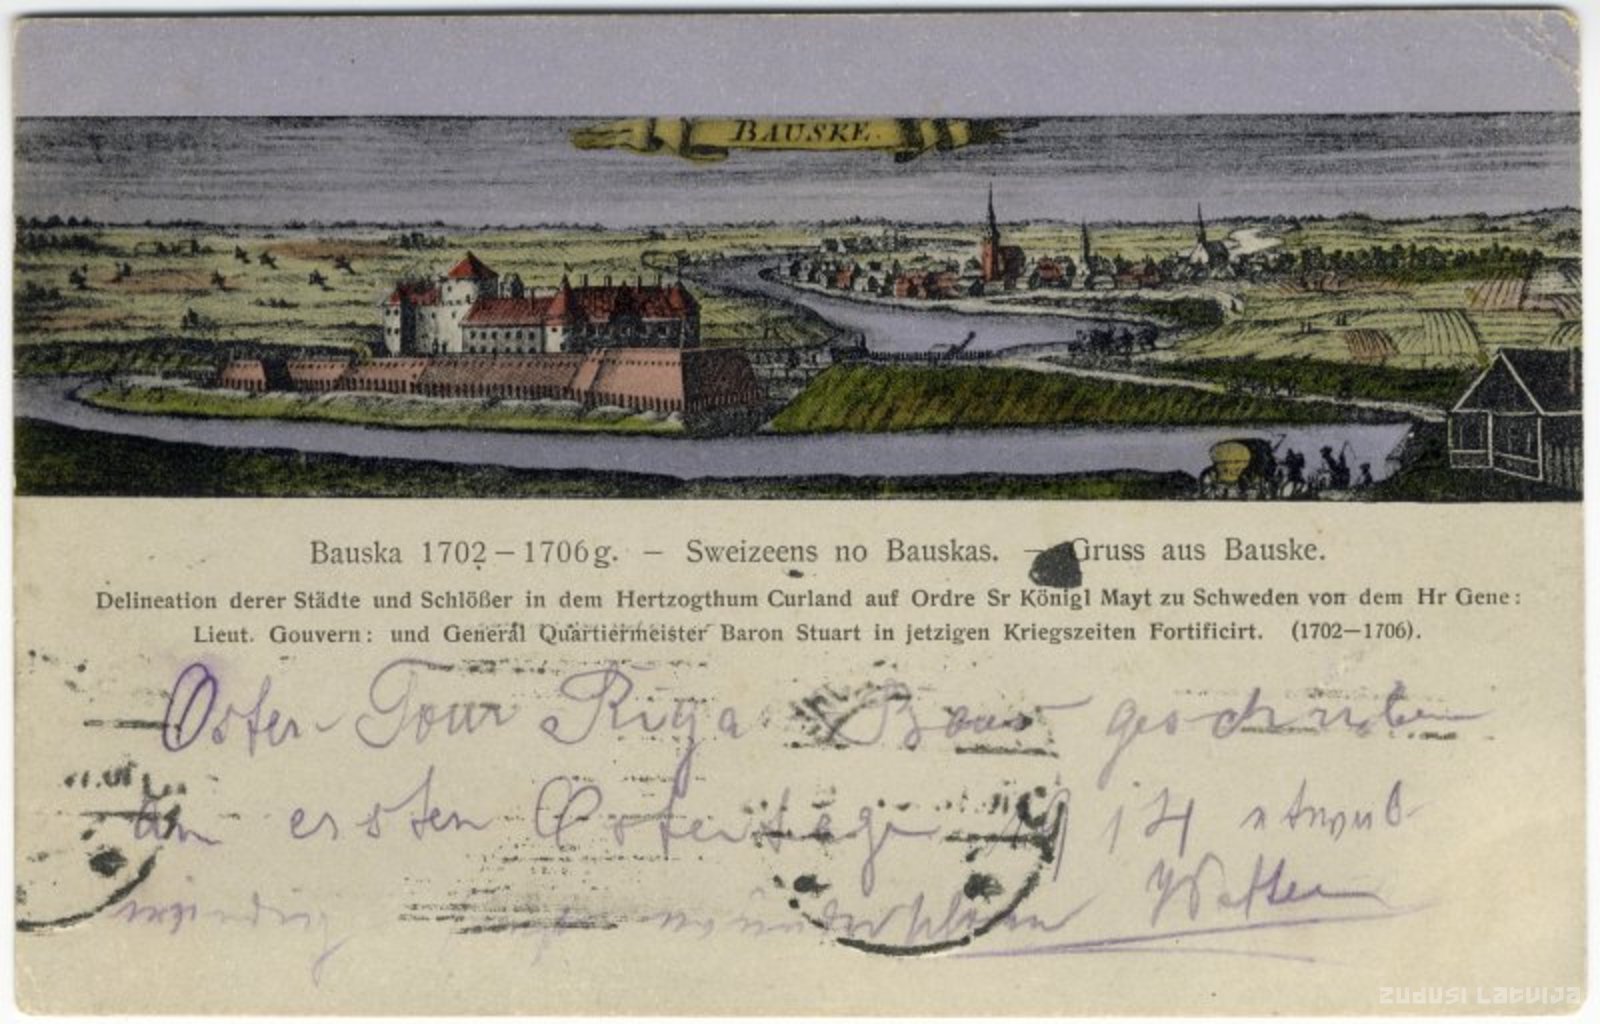 BAUSKE.
Bauska 1702–1706 g. – Sweizeens no Bauskas. – Gruss aus Bauske.
Delineation derer Städte und Schlößer in dem Hertzogthum Curland auf Ordre Sr Königl Mayt zu Schweden von dem Hr Gene:
Lieut. Gouvern: und General Quartiermeister Baron Stuart in jetzigen Kriegszeiten Fortificirt. (1702–1706).
Oster-Tour Riga geschrieben
am ersten Ostertage 1914
windig wunderschön Wetter
zudusi Latvija